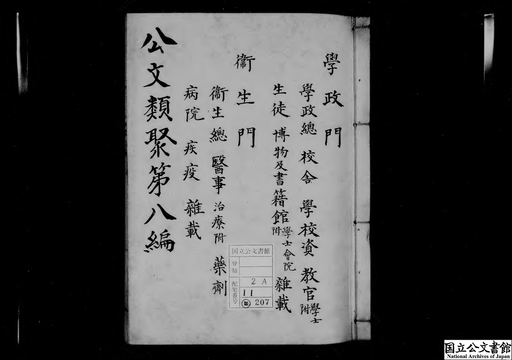 學政門
學政總 校舍 學校資 教官 學士附
生徒 博物及書籍館 學士會院附 雜載
衞生門
衞生總 醫事 治療附 藥劑
病院 疾疫 雜載
公文類聚第八編
国立公文書館
分類
配架番号
2 A
11
207
国立公文書館
National Archives of Japan